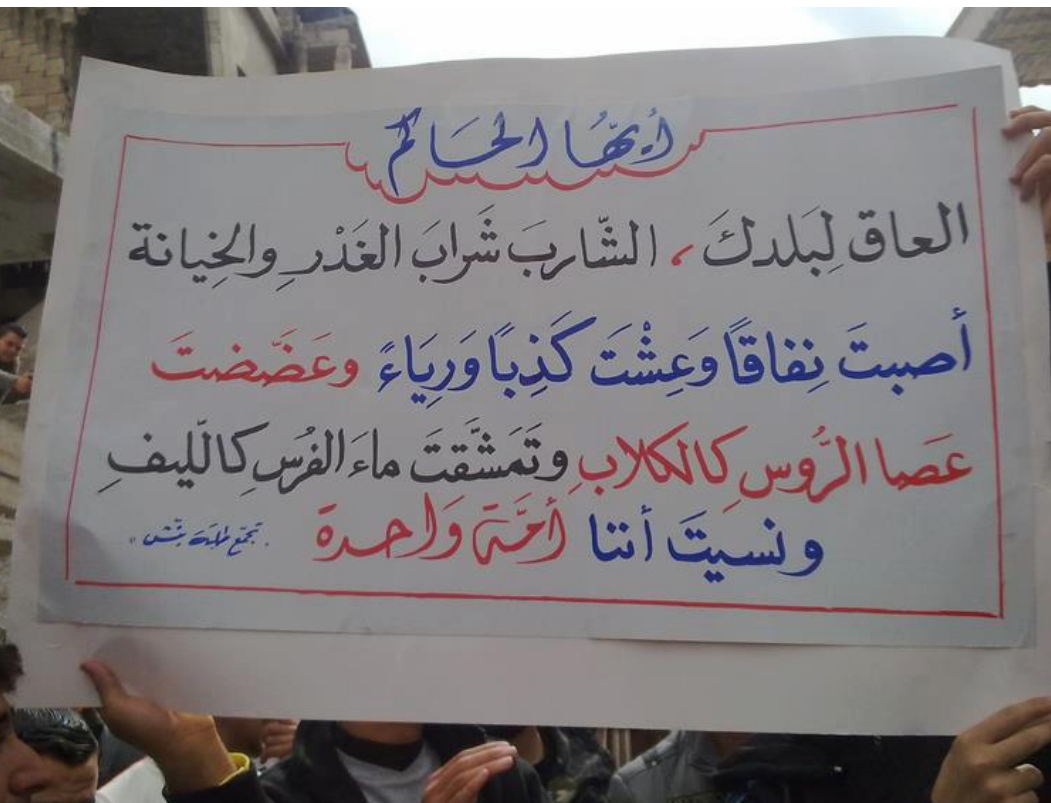 أيّها الحَاكم
العاق لِبَلدكَ ، الشّاربَ شَرابَ الغَدْرِ والخِيانة
أصبتَ نِفاقًا وَعِشْتَ كَذِبًا وَرِيَاءً وعَضّضتَ
عَصا الرُّوسِ كالكلابِ وتَمَشَّقتَ ماءَ الفُرسِ كالّليفِ
ونسيتَ أننا أمَّة وَاحدة
تجمّع طلبة بنّش